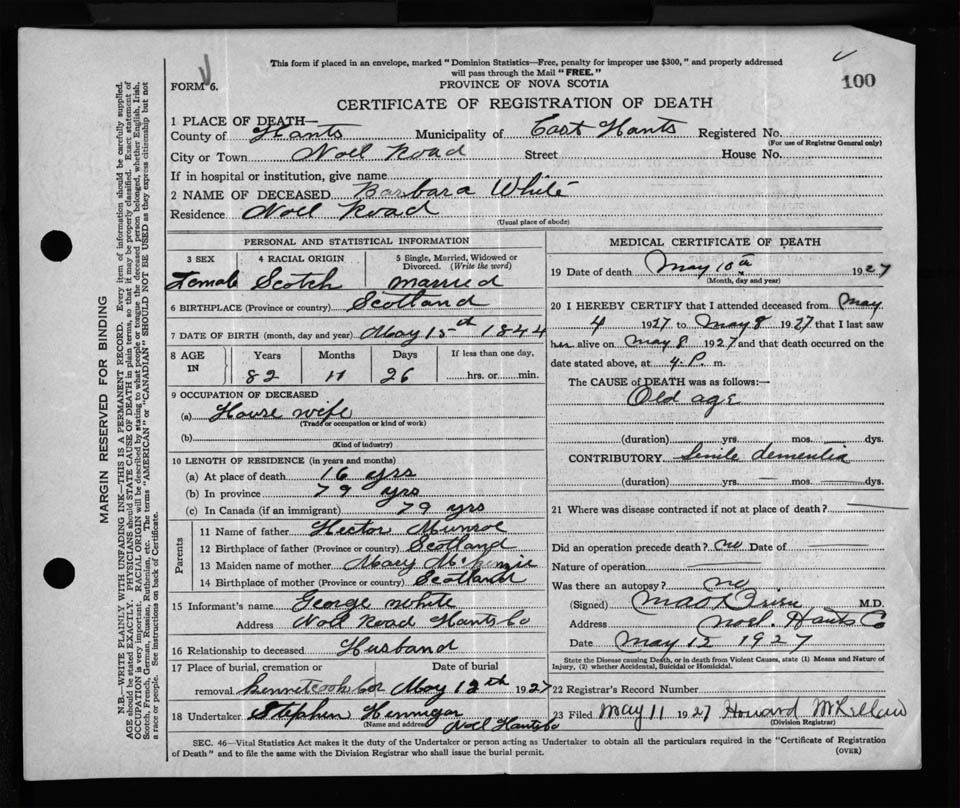 This form if placed in an envelope, marked "Dominion Statistics—Free, penalty for improper use $300," and properly addressed
will pass through the Mail "FREE."
FORM 6.
PROVINCE OF NOVA SCOTIA
100
CERTIFICATE OF REGISTRATION OF DEATH
1 PLACE OF DEATH—
County of Hants Municipality of East Hants Registered No.
(For use of Registrar General only)
City or Town Noel Road Street House No.
If in hospital or institution, give name
2 NAME OF DECEASED Barbara White
Residence Noel Road
(Usual place of abode)
PERSONAL AND STATISTICAL INFORMATION
3 SEX 4 RACIAL ORIGIN 5 Single, Married, Widowed or
Divorced. (Write the word)
Female Scotch married
6 BIRTHPLACE (Province or country) Scotland
7 DATE OF BIRTH (month, day and year) May 15th 1844
8 AGE IN Years Months Days If less than one day,
82 11 26 hrs. or min.
9 OCCUPATION OF DECEASED
(a) House wife
(Trade or occupation or kind of work)
(b)
(Kind of industry)
10 LENGTH OF RESIDENCE (in years and months)
(a) At place of death 16 yrs
(b) In province 79 yrs
(c) In Canada (if an immigrant) 79 yrs
Parents
11 Name of father Hector Munroe
12 Birthplace of father (Province or country) Scotland
13 Maiden name of mother Mary McKinzie
14 Birthplace of mother (Province or country) Scotland
15 Informant's name George White
Address Noel Road Hants Co
16 Relationship to deceased Husband
17 Place of burial, cremation or Date of burial
removal Kennetcook Cor May 12th 1927
18 Undertaker Stephen Hennigar
(Name and address) Noel Hants Co
MEDICAL CERTIFICATE OF DEATH
19 Date of death May 10th 1927
(Month, day and year)
20 I HEREBY CERTIFY that I attended deceased from May
4 1927 to May 8 1927 that I last saw
her alive on May 8 1927 and that death occurred on the
date stated above, at 4 P. m.
The CAUSE of DEATH was as follows:—
Old age
(duration) yrs. mos. dys.
CONTRIBUTORY Senile dementia
(duration) yrs. mos. dys.
21 Where was disease contracted if not at place of death?
Did an operation precede death? no Date of
Nature of operation
Was there an autopsy? no
(Signed) M.D.
Address Noel. Hants Co
Date May 12 1927
State the Disease causing Death, or in death from Violent Causes, state (1) Means and Nature of
Injury, (2) whether Accidental, Suicidal or Homicidal.
22 Registrar's Record Number
23 Filed May 11 1927 Howard
(Division Registrar)
SEC. 46—Vital Statistics Act makes it the duty of the Undertaker or person acting as Undertaker to obtain all the particulars required in the "Certificate of Registration
of Death" and to file the same with the Division Registrar who shall issue the burial permit.
(OVER)
MARGIN RESERVED FOR BINDING
N.B.—WRITE PLAINLY WITH UNFADING INK—THIS IS A PERMANENT RECORD. Every item of information should be carefully supplied.
AGE should be stated EXACTLY. PHYSICIANS should STATE CAUSE OF DEATH in plain terms, so that it may be properly classified. Exact statement of
OCCUPATION is very important. RACIAL ORIGIN will be described by stating to what people or tongue the deceased person belonged, whether English, Irish,
Scotch, French, German, Russian, Ruthenian, etc. The terms "AMERICAN" or "CANADIAN" SHOULD NOT BE USED as they express citizenship but not
a race or people. See instructions on back of Certificate.